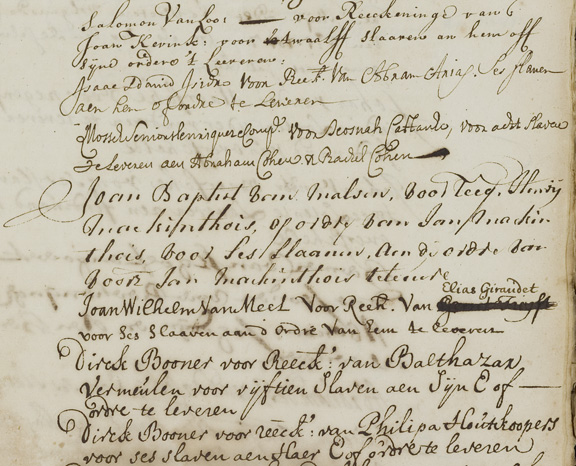 Salomon Van Loo: — voor Reeckeninge van
Joan Kerink: voor twaalff slaaven an hem off
sijne ordere 't Leeveren:
Isaac david voor Reek. Van Abram Arias. Ses slaven
aen hem of ordre te Leveren
Mosse Senior Henriques Comp. Voor voor acht slaven
te leveren aen Abraham Cohen & Cohen
Joan Baptist Van Malsen, voor Reeq.
Mackinthois, op ordre van Jan Mackin
thois, voor Ses slaaven, Aen dj ordre van
voorn Jan Mackinthois televere
Elias Giraudet
Joan Wilhelm Van Meel Voor Reek. Van
voor Ses Slaaven aan d'ordre Van hem te Leveren
Dirck Booner voor Reeck: van Balthazar
Vermeulen voor vijftien slaven aen Sijn E of —
ordre te leveren
Dirck Booner voor reeck: van Philipa Houtkoopers
voor ses slaven aen Haer E of ordre te leveren